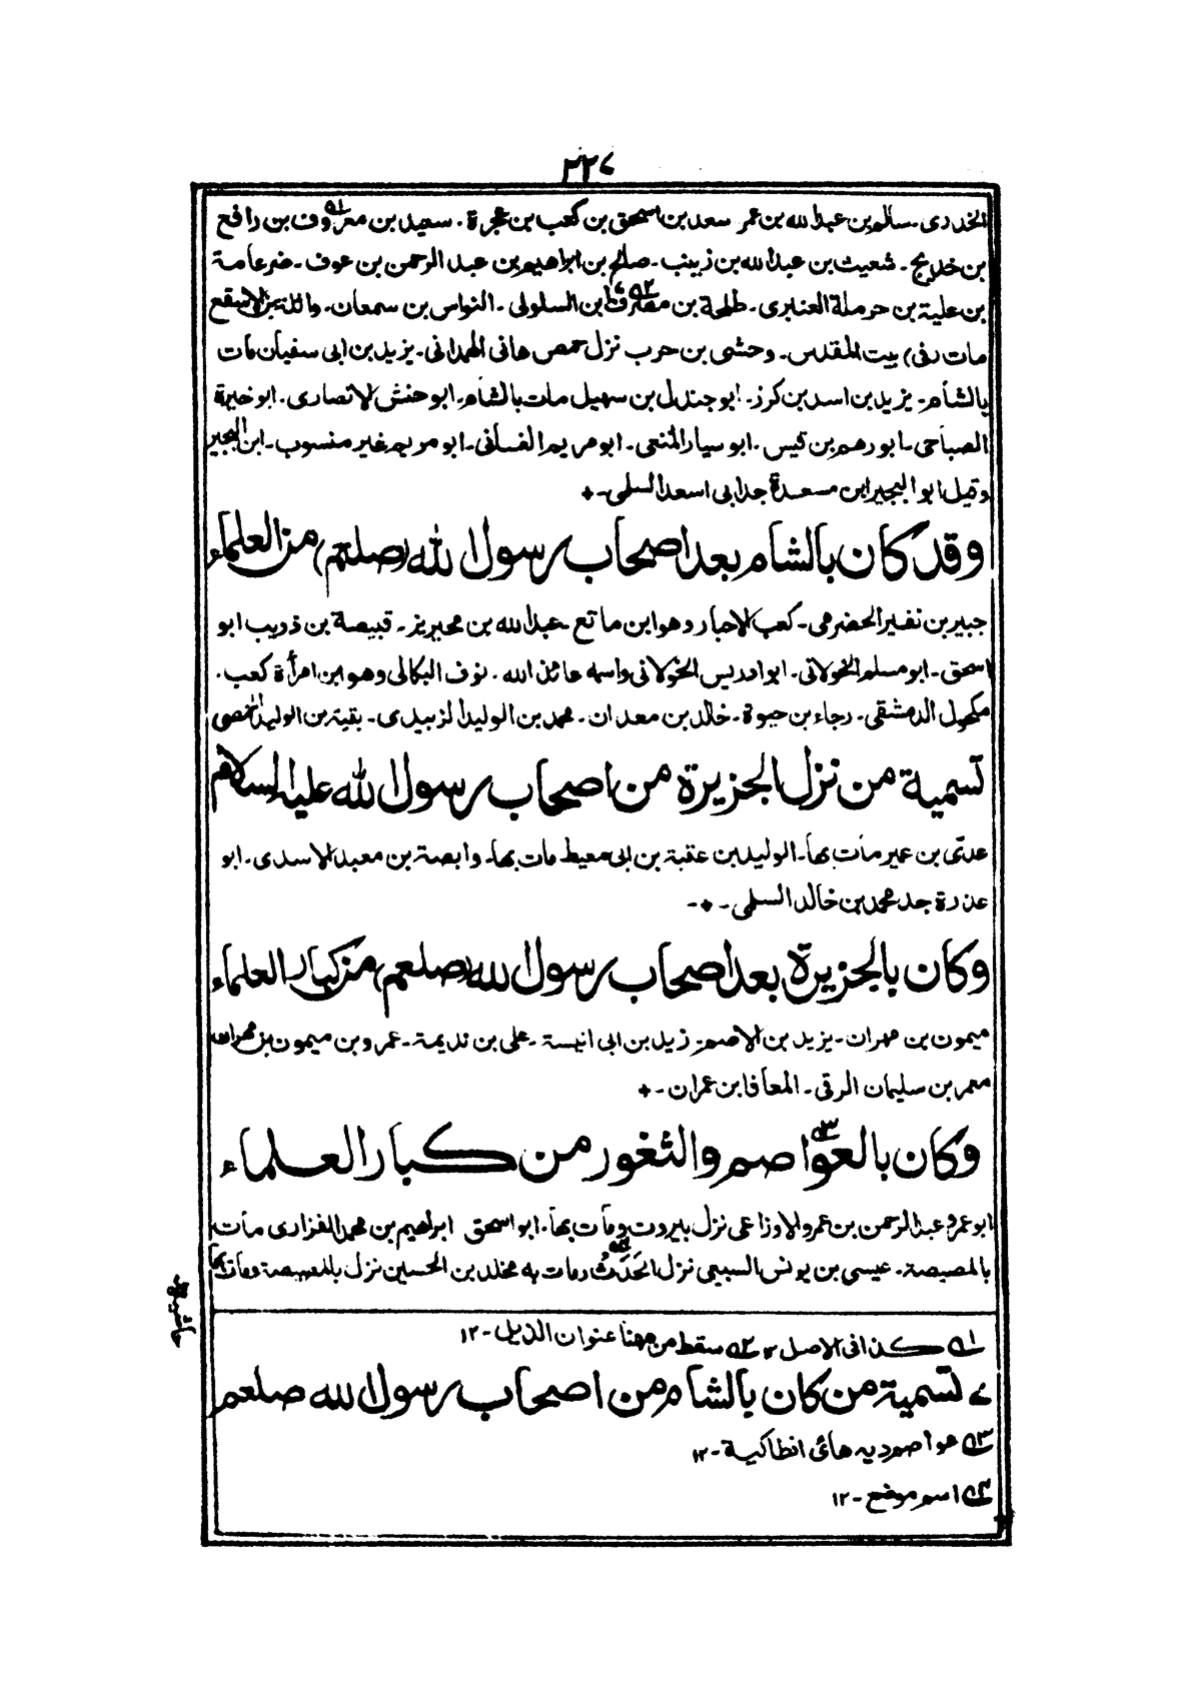 ٢٢٧
الخدرى ـ سالم بن عبد الله بن عمر سعد بن اسحق بن كعب بن عجرة ـ سعيد بن معروف بن رافع
بن خديج ـ شعيث بن عبد الله بن زبيب ـ صالح بن ابراهيم بن عبد الرحمن بن عوف ـ ضرعامة
بن علية بن حرملة العنبرى ـ طلحة بن مصرف ابن السلولى ـ النواس بن سمعان ـ واثلة بن الاسقع
مات (فى) بيت المقدس ـ وحشى بن حرب نزل حمص هانى الهمدانى ـ يزيد بن ابى سفيان مات
بالشام ـ يزيد بن اسد بن كرز ـ ابو جندل بن سهيل مات بالشام ـ ابو حنش الانصارى ـ ابو خيرة
الصباحى ـ ابو رهم بن قيس ـ ابو سيار المتعى ـ ابو مريم الغسانى ـ ابو مريم غير منسوب ـ ابن البجير
وقيل ابو البجير ابن مسعدة جد ابى اسعد السلمى ـ
وقد كان بالشام بعد اصحاب رسول الله (صلعم) من العلماء
جبير بن نفير الحضرمى ـ كعب الاحبار وهو ابن ماتع ـ عبد الله بن محيريز ـ قبيصة بن ذويب ابو
اسحق ـ ابو مسلم الخولانى ـ ابو ادريس الخولانى واسمه عائذ الله ـ نوف البكالى وهو ابن امرأة كعب ـ
مكحول الدمشقى ـ رجاء بن حيوة ـ خالد بن معدان ـ محمد بن الوليد الزبيدى ـ بقية بن الوليد الحمصى
تسمية من نزل الجزيرة من اصحاب رسول الله عليه السلام
عدى بن عمير مات بها ـ الوليد بن عقبة بن ابى معيط مات بها ـ وابصة بن معبد الاسدى ـ ابو
عذرة جد محمد بن خالد السلمى ـ
وكان بالجزيرة بعد اصحاب رسول الله (صلعم) من كبار العلماء
ميمون بن مهران ـ يزيد بن الاصم ـ زيد بن ابى انيسة ـ على بن نديمة ـ عمرو بن ميمون بن مهران
معمر بن سليمان الرقى ـ المعافا بن عمران ـ
وكان بالعواصم والثغور من كبار العلماء
ابو عمرو عبد الرحمن بن عمرو الاوزاعى نزل ببيروت ومات بها ـ ابو اسحق ابراهيم بن محمد الفزارى مات
بالمصيصة ـ عيسى بن يونس السبيعى نزل الحَدَثُ ومات به مخلد بن الحسين نزل بالمصيصة ومات بها
١ه كذا فى الاصل ١٢ ٢ه سقط من ههنا عنوان الذيل ـ ١٢
تسمية من كان بالشام من اصحاب رسول الله صلعم
٣ه انطاكية ـ ١٢
٤ه اسم موضع ـ ١٢